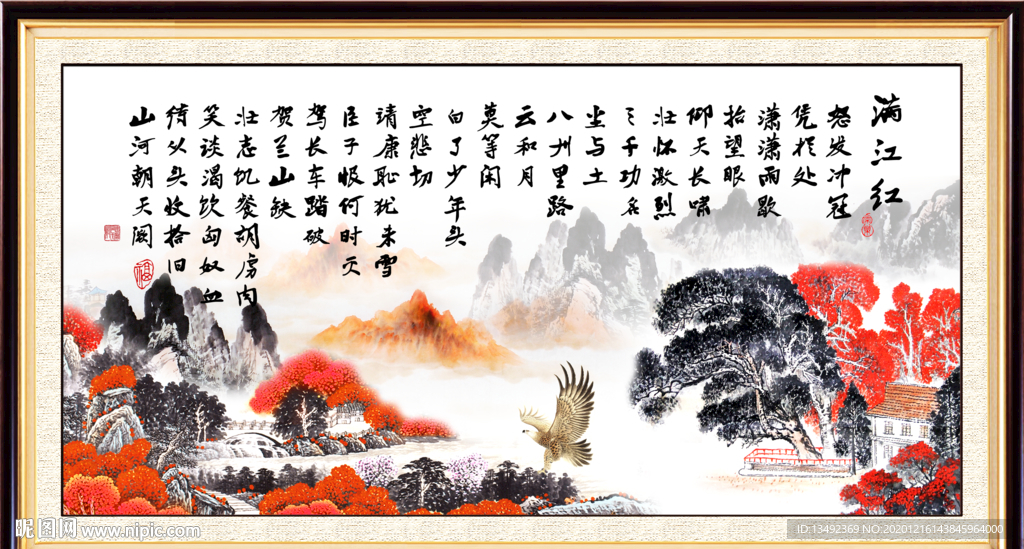 满江红
怒发冲冠
凭栏处
潇潇雨歇
抬望眼
仰天长啸
壮怀激烈
三千功名
尘与土
八州里路
云和月
莫等闲
白了少年头
空悲切
靖康耻犹未雪
臣子恨何时灭
驾长车踏破
贺兰山缺
壮志饥餐胡虏肉
笑谈渴饮匈奴血
待从头收拾旧
山河朝天阙
福
昵图网 www.nipic.com
ID:13492369 NO:20201216143845964000